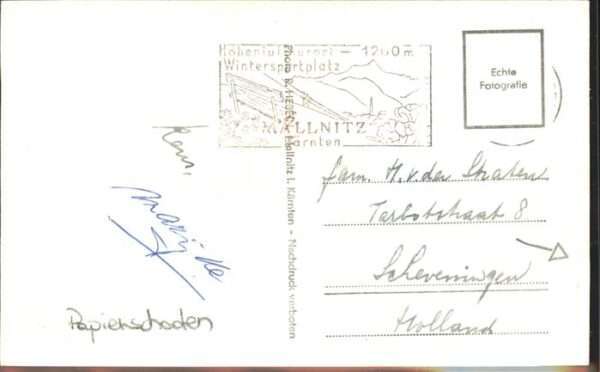 Höhenluftkurort - 1200 m
Wintersportplatz
MALLNITZ
Kärnten
Echte
Fotografie
Mallnitz i. Kärnten - Nachdruck verboten
Marijke
Papierschaden
fam. H. v. der Straten
Tarbotstraat 8
Scheveningen
Holland